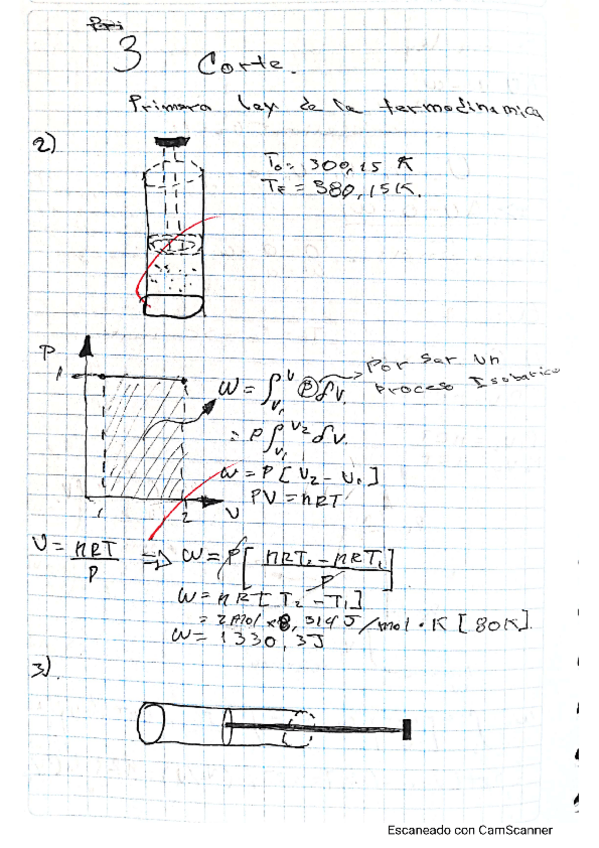 3 Corte.
Primera ley de la termodinamica
2)
T₀ = 300,15 K
T_F = 380,15 K.
P
1
W = ∫_{V₁}^{V} P dV
Por ser un
proceso Isobarico
= P ∫_{V₁}^{V₂} dV
W = P [V₂ - V₁]
PV = nRT
1 2 V
V = nRT / P ⇒ W = P [ (nRT₂ - nRT₁) / P ]
W = nR [T₂ - T₁]
= 2 mol × 8,314 J/mol · K [80K]
W = 1330,3J
3)
Escaneado con CamScanner